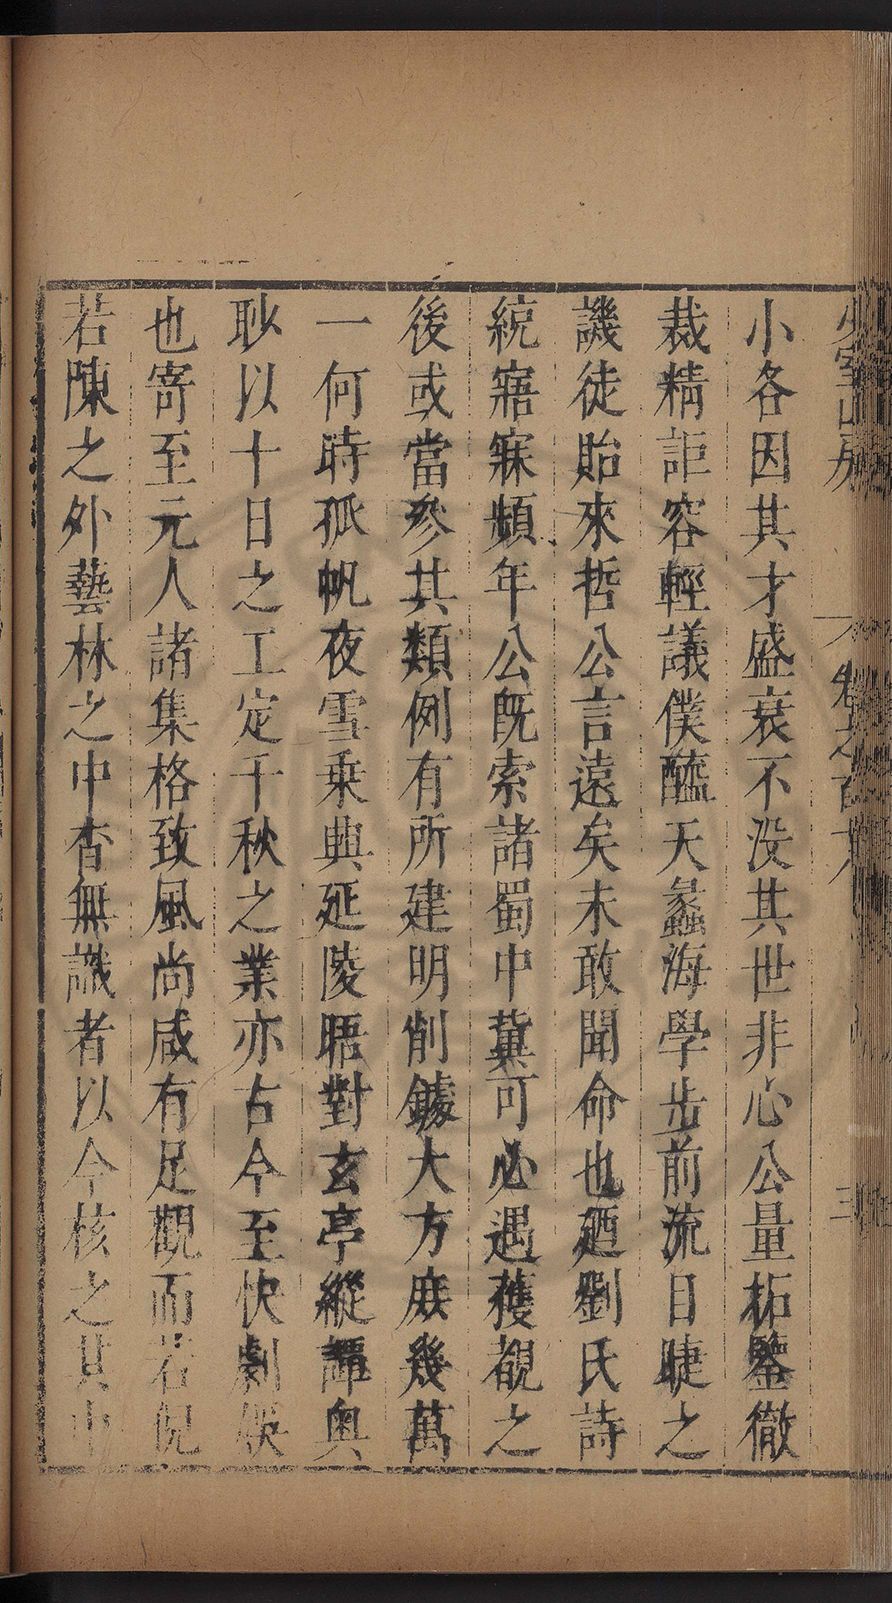 少室山房 卷之百十八 三
小各因其才盛衰不没其世非心公量柘鑒徹
裁精詎容輕議僕醯天蠡海學步前流目睫之
譏徒貽來哲公言遠矣未敢聞命也廼劉氏詩
統寤寐頻年公既索諸蜀中冀可必遇穫覩之
後或當參其類例有所建明削鐻大方庶幾萬
一何時孤帆夜雪乗興延陵晤對玄亭縱譚奥
眇以十日之工定千秋之業亦古今至快劇娱
也寄至元人諸集格致風尚咸有足觀而若倪
若陳之外藝林之中杳無識者以今核之其中